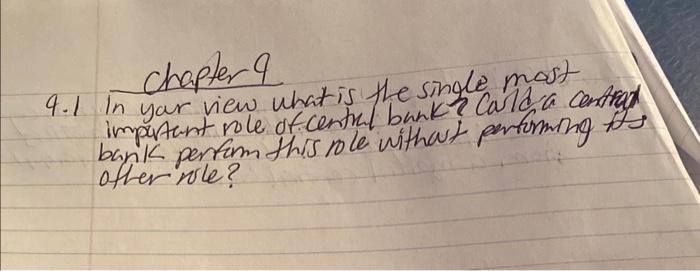 chapter 9
9.1 In your view what is the single most
important role of central bank? Could a central
bank perform this role without performing its
other role?